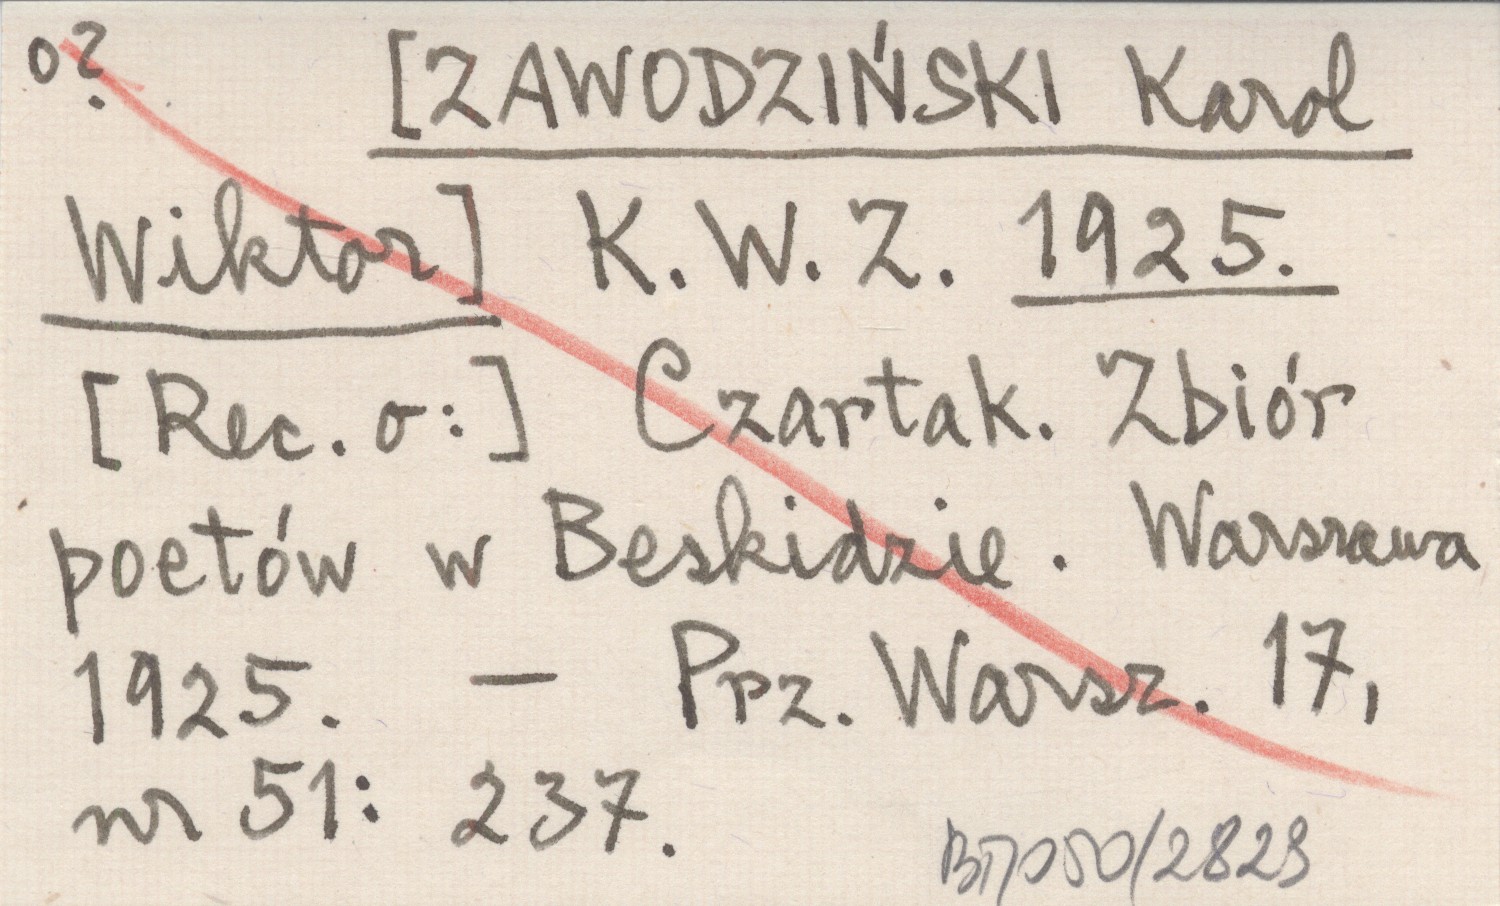 o? [ZAWODZIŃSKI Karol
Wiktor] K. W. Z. 1925.
[Rec. o:] Czartak. Zbiór
poetów w Beskidzie. Warszawa
1925. — Prz. Warsz. 17,
nr 51: 237.